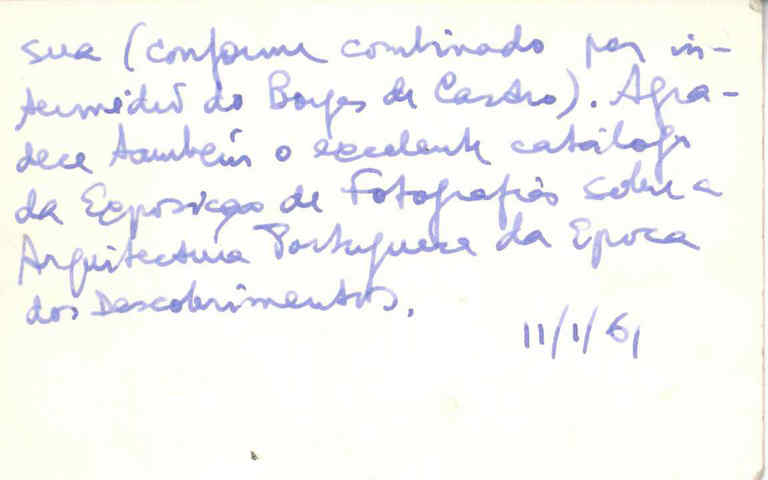 sua (conforme combinado por in-
termédio do Borges de Castro). Agra-
dece também o excelente catálogo
da Exposição de Fotografias sobre a
Arquitectura Portuguesa da Epoca
dos Descobrimentos.
11/1/61